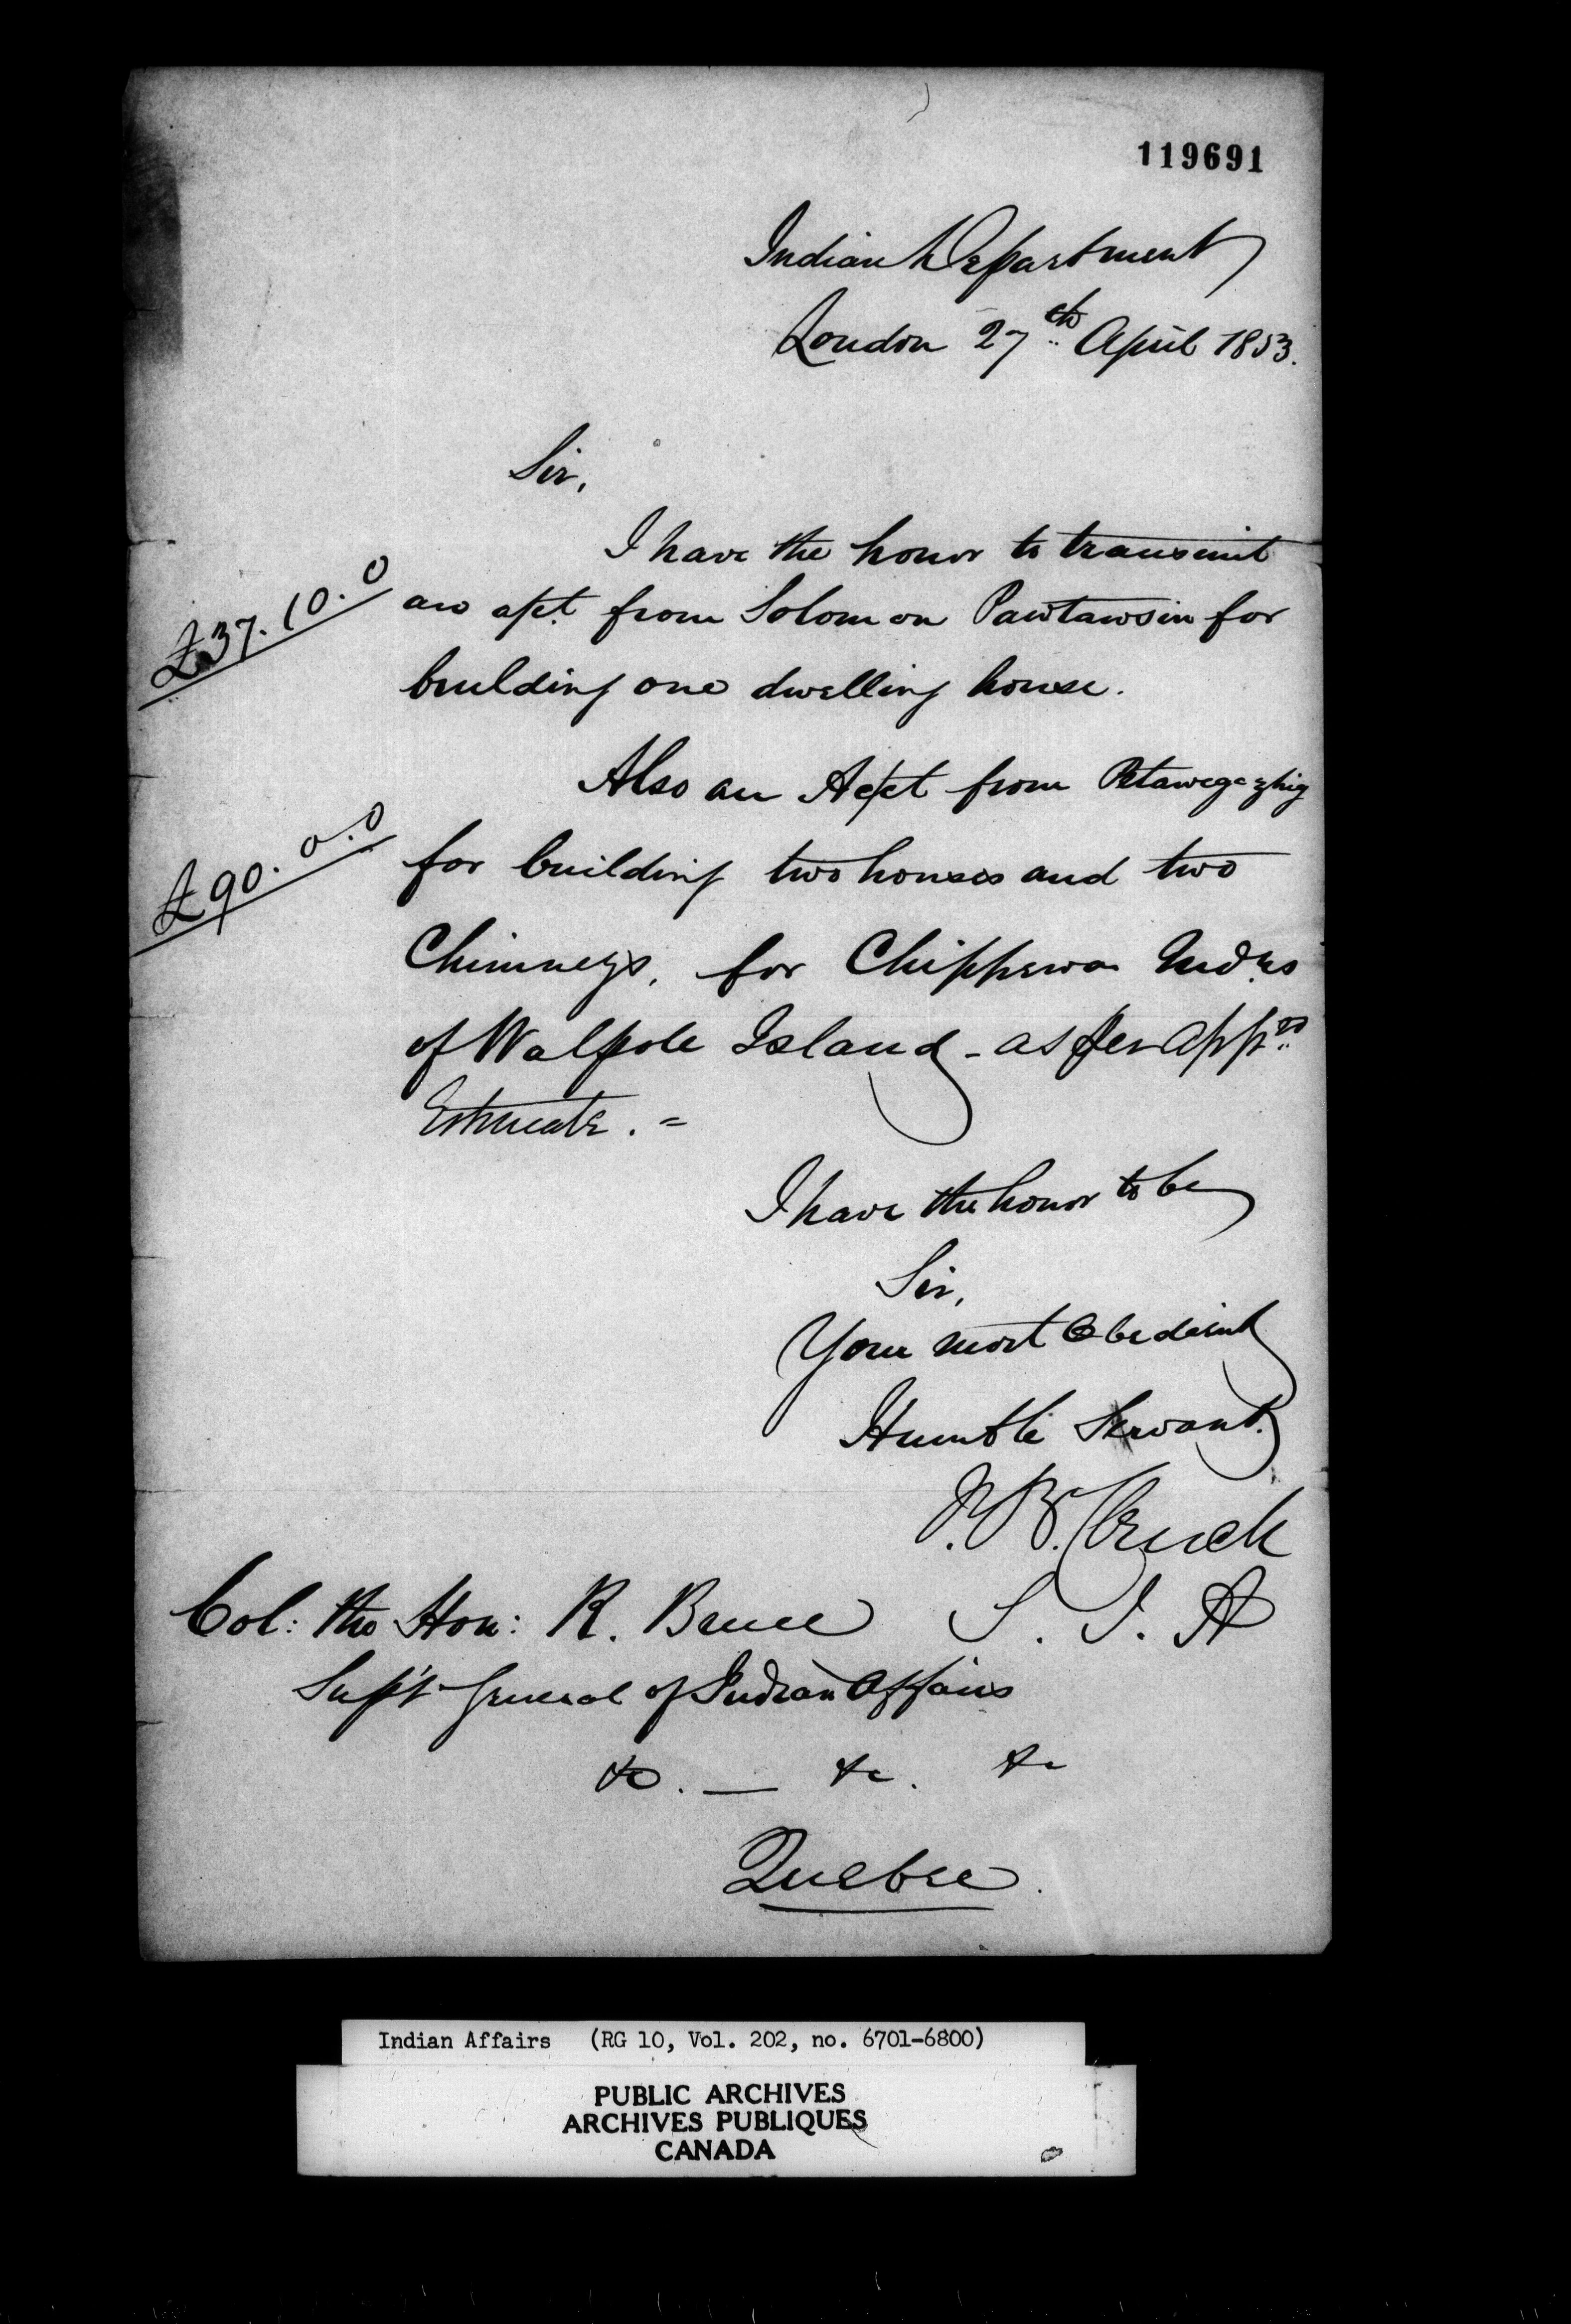 119691
Indian Department
London 27th April 1853.
Sir,
I have the honor to transmit
£37.10.0
an apt. from Solomon Pawtawsin for
building one dwelling house.
Also an Acct from Petawegezhig
£90.0.0
for building two houses and two
Chimneys, for Chippewa Indns
of Walpole Island - as per appd
Estimate. =
I have the honor to be
Sir,
Your most Obedient
Humble Servant.
J.B. Clench
S. I. A
Col: the Hon: R. Bruce
Supt General of Indian Affairs
&c. — &c. &c
Quebec.
Indian Affairs (RG 10, Vol. 202, no. 6701-6800)
PUBLIC ARCHIVES
ARCHIVES PUBLIQUES
CANADA